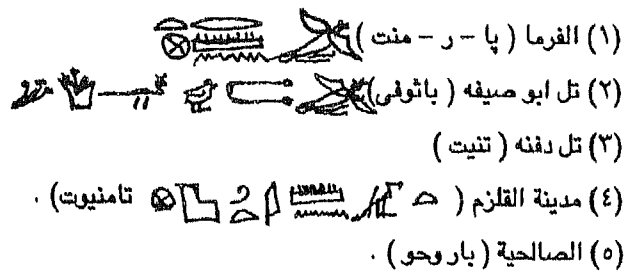 (١) الفرما ( پا – ر – منت )
(٢) تل ابو صيفه ( باثوفى )
(٣) تل دفنه ( تنيت )
(٤) مدينة القلزم ( تامنيوت ) .
(٥) الصالحية ( بار وحو ) .